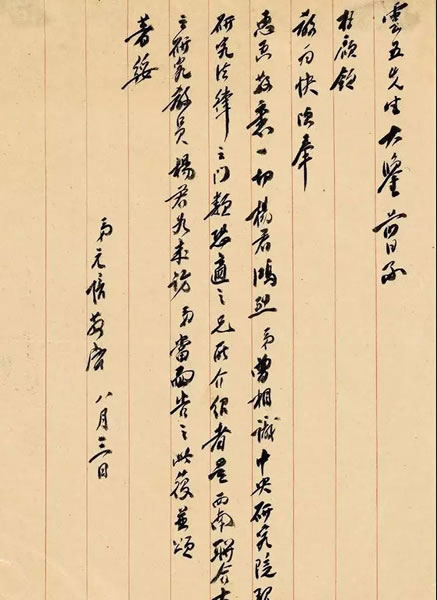 雲五先生大鑒前日承
枉顧領
教為快頃奉
惠函敬悉一切楊君鴻烈弟曾相識中央研究院
研究法律之門類恐適之兄所介紹者是西南聯合大
之研究教員楊君如來訪弟當面告之此復並頌
著綏
弟元培敬啓 八月三日